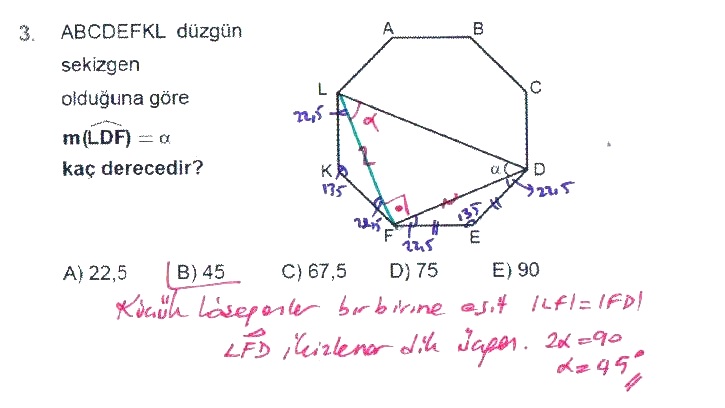 3. ABCDEFKL düzgün
sekizgen
olduğuna göre
m(LDF) = α
kaç derecedir?
A
B
L
C
22,5
α
K
135
α
D
22,5
22,5
135
F
22,5
E
A) 22,5 B) 45 C) 67,5 D) 75 E) 90
Küçük köşegenler birbirine eşit |LF|=|FD|
LFD ikizkenar dik üçgen. 2α=90
α=45°